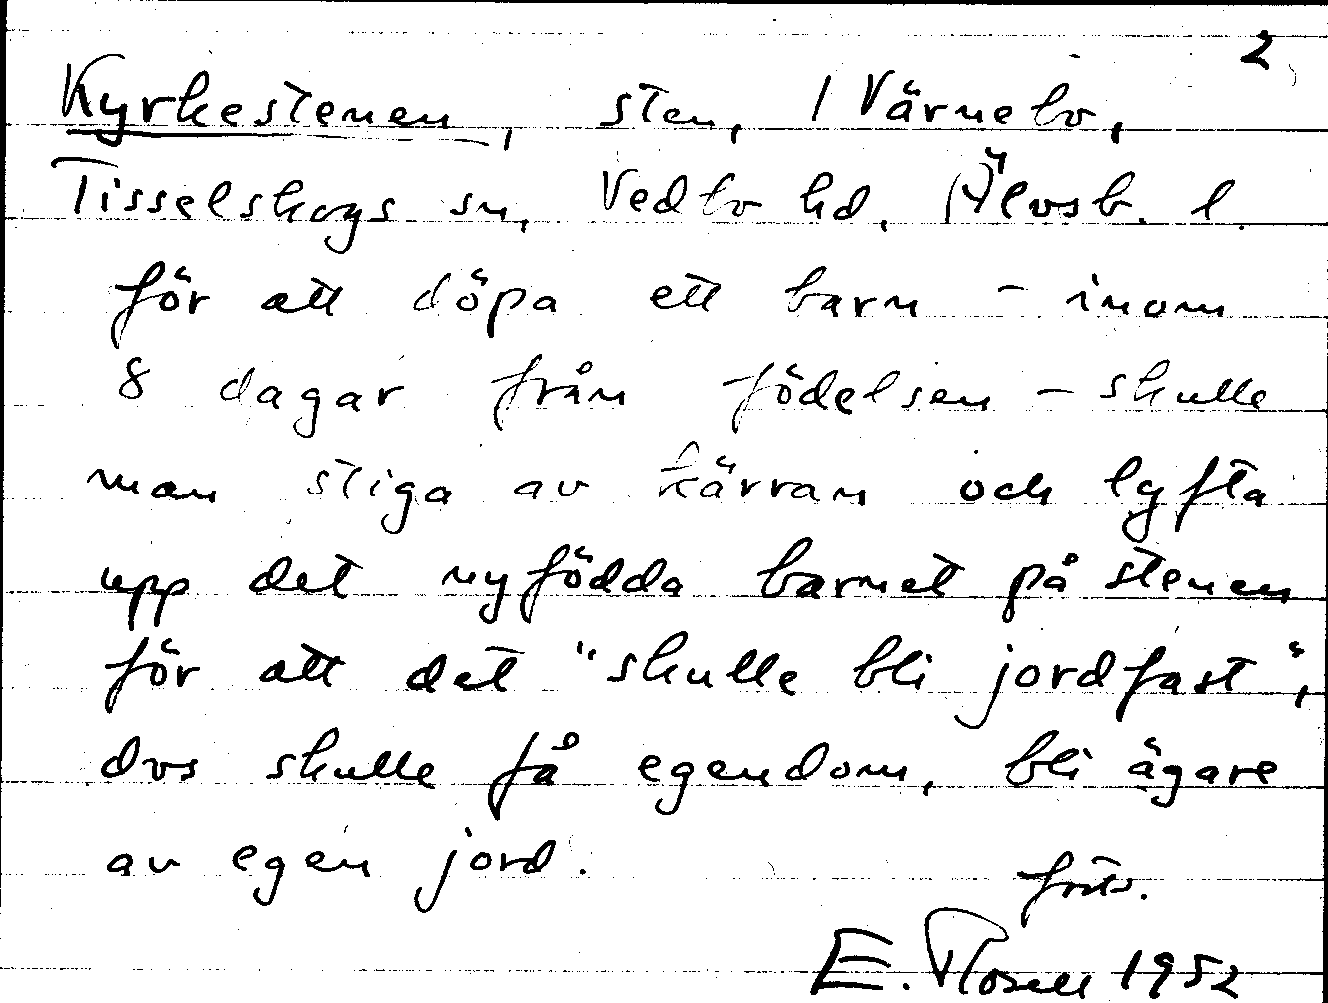 2
Kyrkestenen, sten, 1 Värnebo,
Tisselskogs sn, Vedbo hd, Älvsb. l.
för att döpa ett barn – inom
8 dagar från födelsen – skulle
man stiga av kärran och lyfta
upp det nyfödda barnet på stenen
för att det "skulle bli jordfast",
dvs skulle få egendom, bli ägare
av egen jord.
forts.
E. Rosell 1952